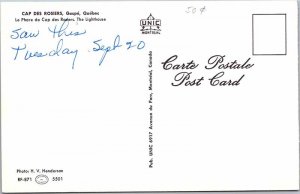 CAP DES ROSIERS, Gaspé, Québec
Le Phare du Cap des Rosiers, The Lighthouse
saw this
Tuesday Sept 20
50¢
UNIC
MONTREAL
Carte Postale
Post Card
Pub. UNIC 6917 Avenue du Parc, Montréal, Canada
Photo: H. V. Henderson
RF-871 5501